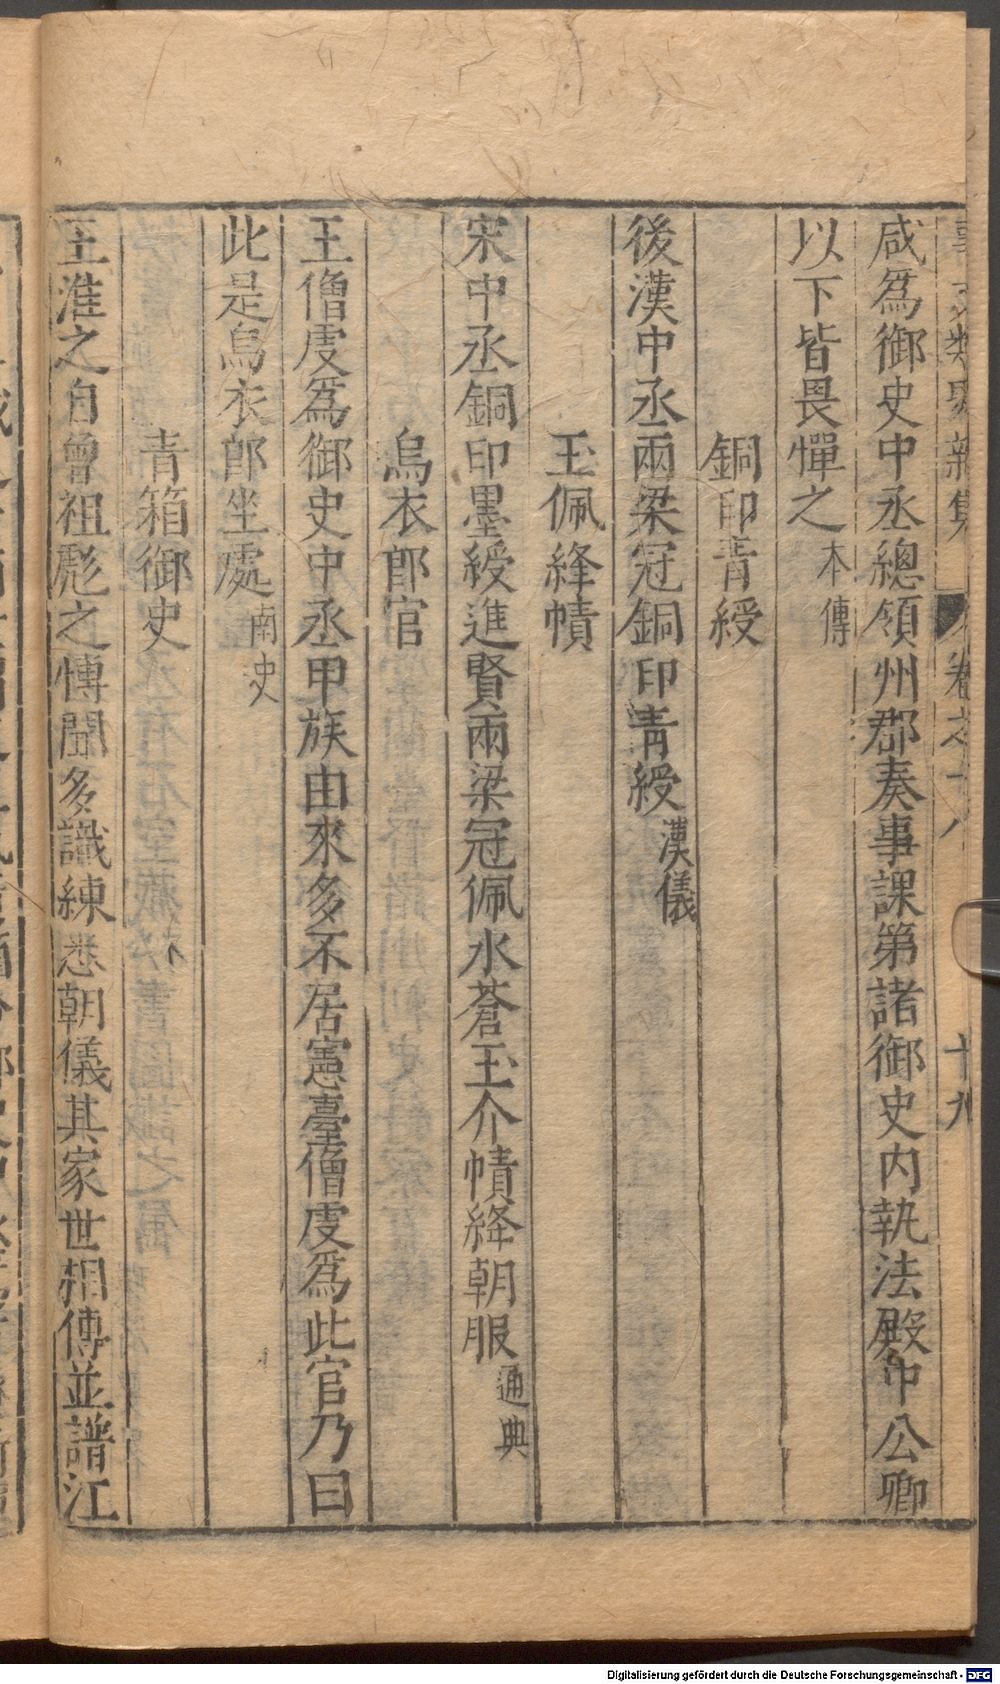 事文類聚新集 卷之十八 十九
咸爲御史中丞總領州郡奏事課第諸御史内執法殿中公卿
以下皆畏憚之本傳
銅印青綬
後漢中丞兩梁冠銅印青綬漢儀
玉佩絳幘
宋中丞銅印墨綬進賢兩梁冠佩水蒼玉介幘絳朝服通典
烏衣郎官
王僧虔爲御史中丞甲族由來多不居憲臺僧虔爲此官乃曰
此是烏衣郎坐處南史
青箱御史
王淮之自曾祖彪之愽聞多識練悉朝儀其家世相傳並譜江
Digitalisierung gefördert durch die Deutsche Forschungsgemeinschaft - DFG